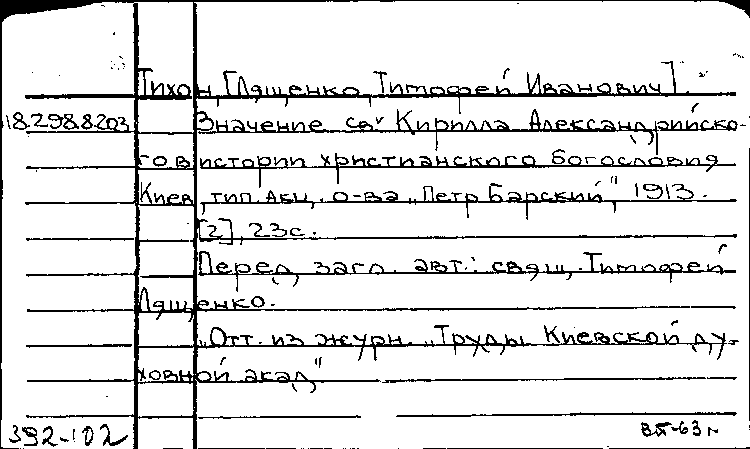 Тихон [Лященко, Тимофей Иванович].
18.298.8.203 Значение св. Кирилла Александрийско-
го в истории христианского богословия
Киев, тип. Акц. о-ва "Петр Барский", 1913.
[2], 23 с.
Перед загл. авт.: свящ. Тимофей
Лященко.
"Отт. из журн. "Труды Киевской ду-
ховной акад."
392-102